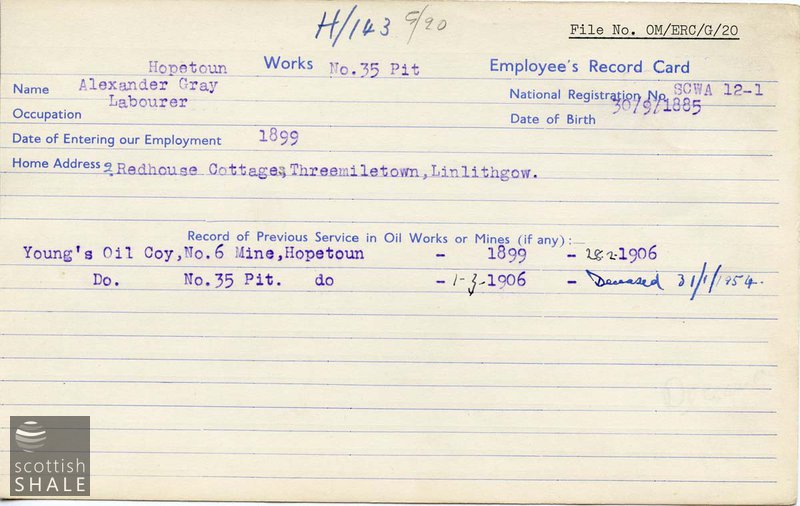 H/143 G/20
File No. OM/ERC/G/20
Hopetoun Works No.35 Pit Employee's Record Card
Name Alexander Gray National Registration No. SCWA 12-1
Occupation Labourer Date of Birth 30/9/1885
Date of Entering our Employment 1899
Home Address 2 Redhouse Cottages, Threemiletown, Linlithgow.
Record of Previous Service in Oil Works or Mines (if any):—
Young's Oil Coy, No.6 Mine, Hopetoun - 1899 - 28.2.1906
Do. No.35 Pit. do - 1-3-1906 - Deceased 31/1/1954.
scottish
SHALE